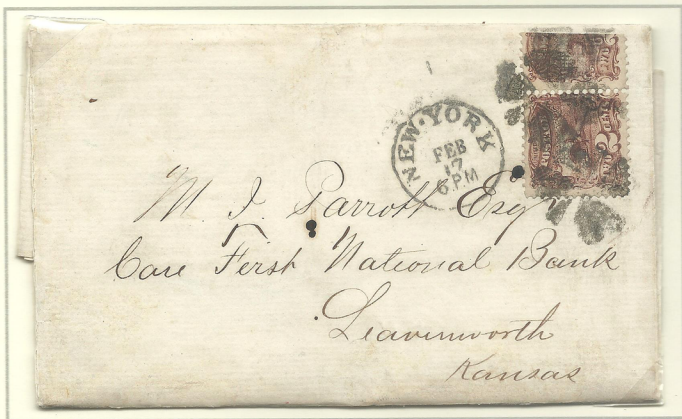 NEW-YORK
FEB
17
6 P.M
M. J. Parrott Esqr
Care First National Bank
Leavenworth
Kansas